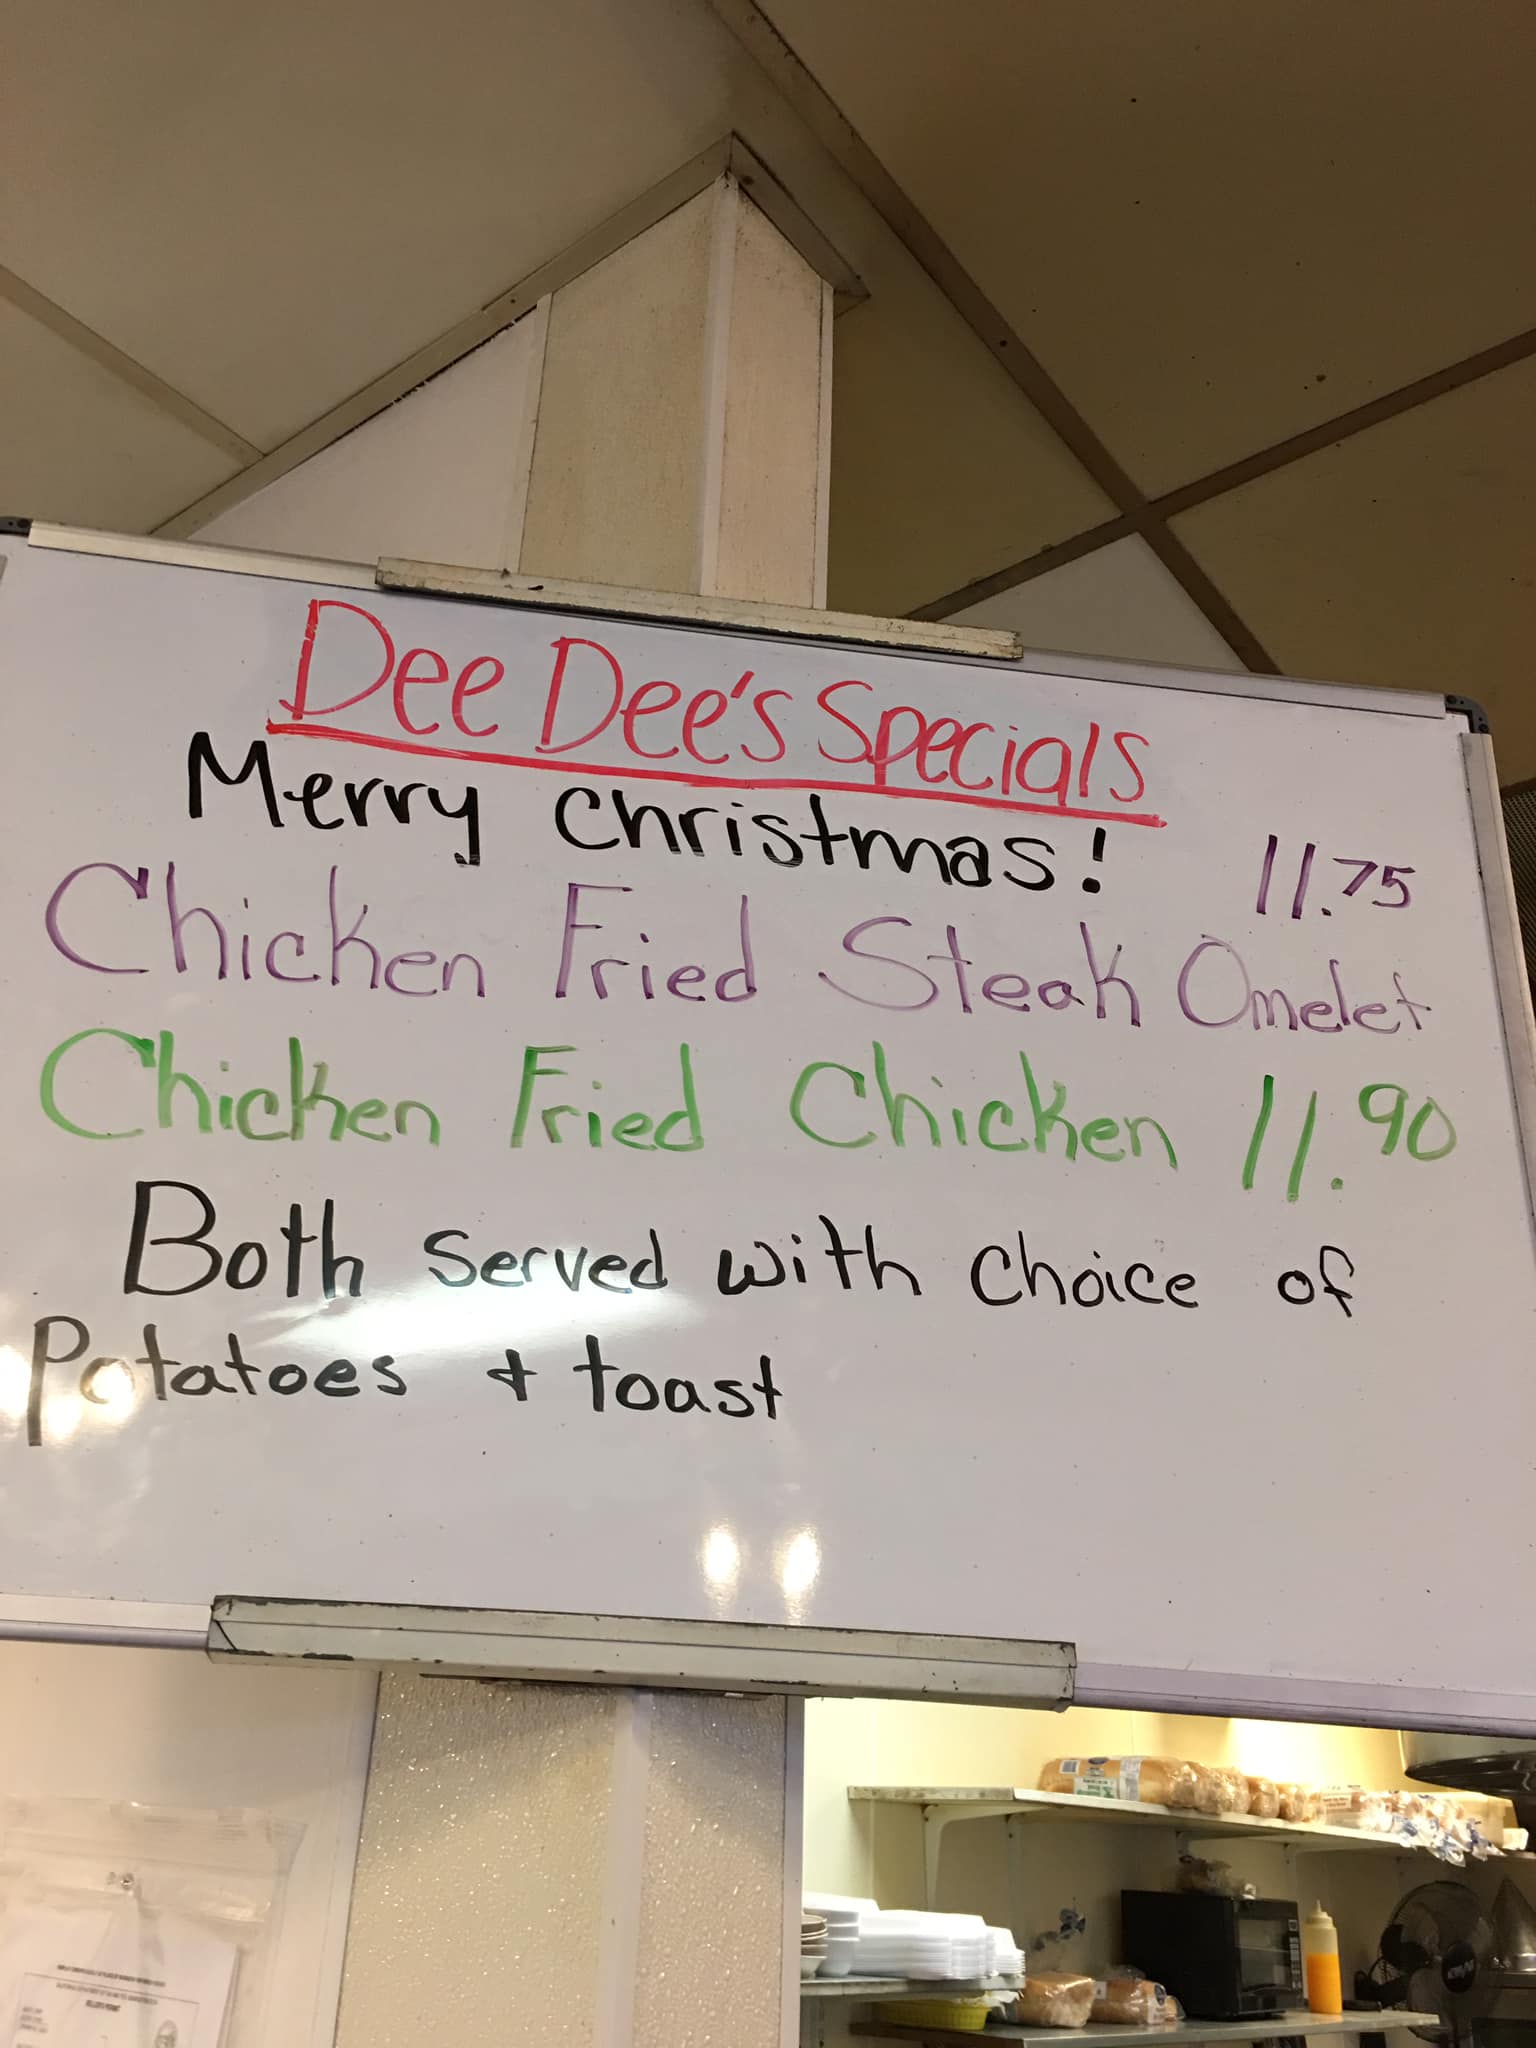 Dee Dee's Specials
Merry Christmas!
11.75
Chicken Fried Steak Omelet
Chicken Fried Chicken 11.90
Both served with choice of
Potatoes + toast